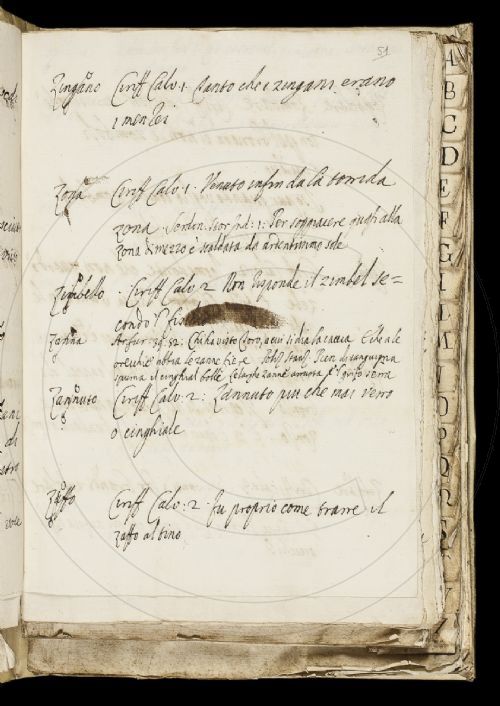 51
Zingano Ciriff Calv. 1. Tanto che i zingani erano
i menzei
Zona Ciriff Calv. 1. Venuto infin da la torrida
zona. 1. Per soggiacere quegli alla
zona di mezzo è scaldata da ardentissimo sole
Zimbello. Ciriff Calv. 2 Non risponde il zimbel se-
condo 'l
Zanna 92. C'ha visto toro, a cui si dia la caccia E ch'a le
orecchie habia le zanne fiere di sanguigna
spuma il cinghial bolle e larghe zanne arruota, e 'l grifo serra
Zannuto Ciriff Calv. 2: Zannuto piu che mai verro
o cinghiale
Zaffo Ciriff Calv. 2. fu proprio come trarre il
zaffo al tino
A
B
C
D
E
F
G
I
L
M
N
O
P
Q
R
S